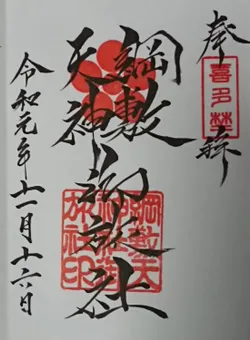 奉拝
喜多埜
綱敷
天神
御旅社
令和元年十一月十六日
綱敷天
旅社印